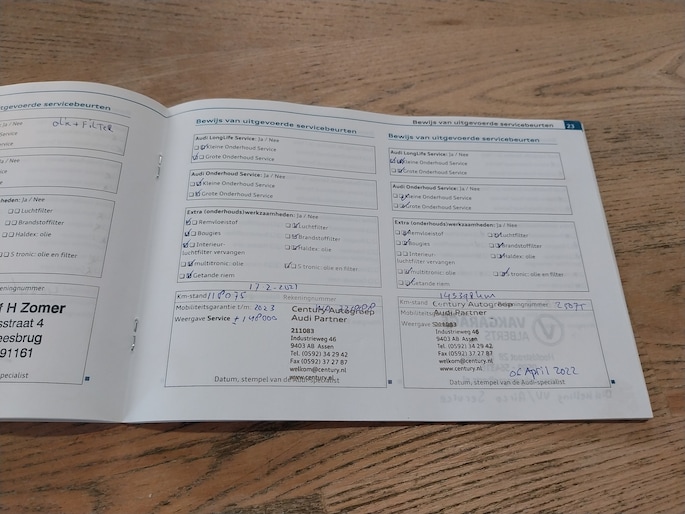 uitgevoerde servicebeurten
Ja / Nee
olie + FilTER
Service
Service
Ja / Nee
Service
Service
heden: Ja / Nee
Luchtfilter
Brandstoffilter
Haldex: olie
S tronic: olie en filter
f H Zomer
sstraat 4
eesbrug
91161
specialist
Bewijs van uitgevoerde servicebeurten
Audi LongLife Service: Ja / Nee
Kleine Onderhoud Service
Grote Onderhoud Service
Audi Onderhoud Service: Ja / Nee
Kleine Onderhoud Service
Grote Onderhoud Service
Extra (onderhouds)werkzaamheden: Ja / Nee
Remvloeistof
Luchtfilter
Bougies
Brandstoffilter
Interieur-
luchtfilter vervangen
Haldex: olie
multitronic: olie
S tronic: olie en filter
Getande riem
17-2-2021
Km-stand 118075
Rekeningnummer
Mobiliteitsgarantie t/m: 2023
Century Autogroep
Audi Partner
Weergave Service ± 148000
211083
Industrieweg 46
9403 AB Assen
Tel. (0592) 34 29 42
Fax (0592) 37 27 87
welkom@century.nl
www.century.nl
Datum, stempel van de Audi-specialist
Bewijs van uitgevoerde servicebeurten 23
Bewijs van uitgevoerde servicebeurten
Audi LongLife Service: Ja / Nee
Kleine Onderhoud Service
Grote Onderhoud Service
Audi Onderhoud Service: Ja / Nee
Kleine Onderhoud Service
Grote Onderhoud Service
Extra (onderhouds)werkzaamheden: Ja / Nee
Remvloeistof
Luchtfilter
Bougies
Brandstoffilter
Interieur-
luchtfilter vervangen
Haldex: olie
multitronic: olie
S tronic: olie en filter
Getande riem
Km-stand
Century Autogroep
Rekeningnummer
Audi Partner
211083
Industrieweg 46
9403 AB Assen
Tel. (0592) 34 29 42
Fax (0592) 37 27 87
welkom@century.nl
www.century.nl
06 April 2022
Datum, stempel van de Audi-specialist